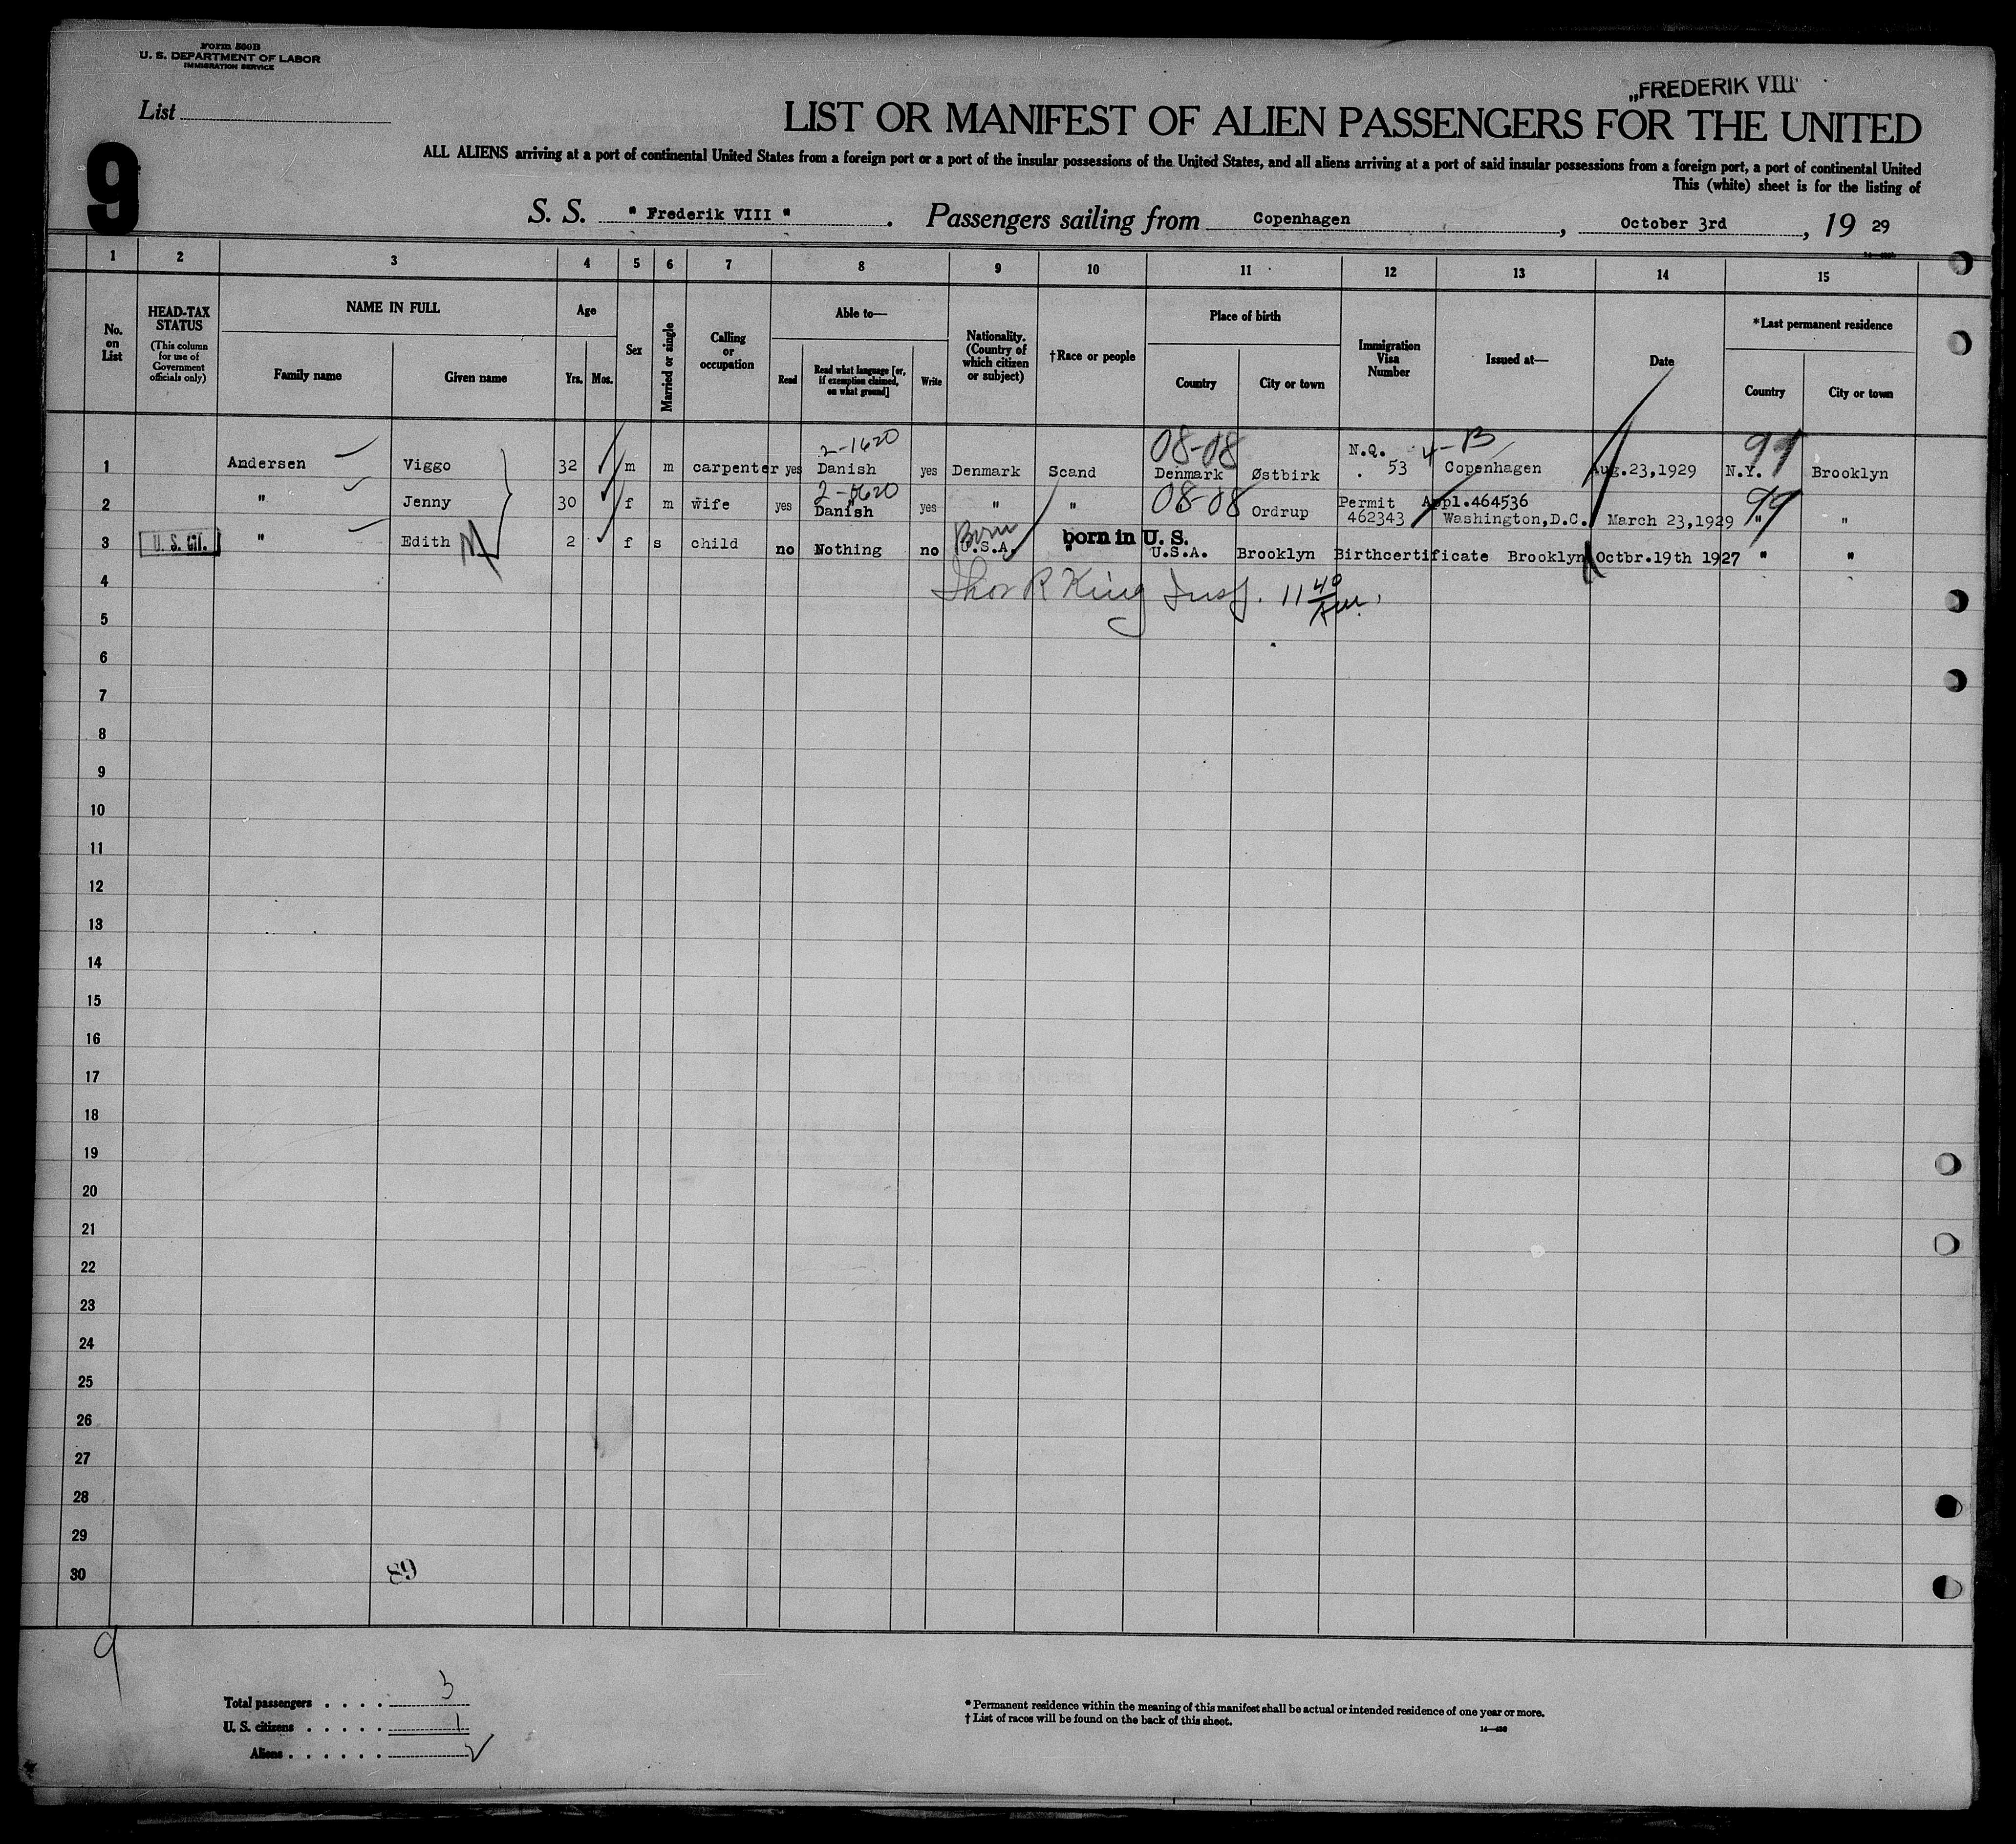 Form 500B
U. S. DEPARTMENT OF LABOR
IMMIGRATION SERVICE
„FREDERIK VIII"
List
LIST OR MANIFEST OF ALIEN PASSENGERS FOR THE UNITED
9
ALL ALIENS arriving at a port of continental United States from a foreign port or a port of the insular possessions of the United States, and all aliens arriving at a port of said insular possessions from a foreign port, a port of continental United
This (white) sheet is for the listing of
S. S. " Frederik VIII ". Passengers sailing from Copenhagen, October 3rd, 19 29
1 2 3 4 5 6 7 8 9 10 11 12 13 14 15
No. on List
HEAD-TAX STATUS (This column for use of Government officials only)
NAME IN FULL
Family name Given name
Age
Yrs. Mos.
Sex
Married or single
Calling or occupation
Able to—
Read Read what language [or, if exemption claimed, on what ground] Write
Nationality. (Country of which citizen or subject)
†Race or people
Place of birth
Country City or town
Immigration Visa Number
Issued at—
Date
*Last permanent residence
Country City or town
2-1620 08-08 N.Q. 4-B 99
1 Andersen Viggo 32 m m carpenter yes Danish yes Denmark Scand Denmark Østbirk 53 Copenhagen Aug.23,1929 N.Y. Brooklyn
2 " Jenny 30 f m wife yes Danish yes " " 08-08 Ordrup Permit 462343 Appl.464536 Washington,D.C. March 23,1929 99 " "
3 U. S. CIT. " Edith 2 f s child no Nothing no Born U.S.A. " born in U. S. U.S.A. Brooklyn Birthcertificate Brooklyn Octbr.19th 1927 " "
4
Thos R King Insp. 11 40 AM.
5
6
7
8
9
10
11
12
13
14
15
16
17
18
19
20
21
22
23
24
25
26
27
28
29
30
89
9
Total passengers . . . . 3
U. S. citizens . . . . . 1
Aliens . . . . . . 2
* Permanent residence within the meaning of this manifest shall be actual or intended residence of one year or more.
† List of races will be found on the back of this sheet.